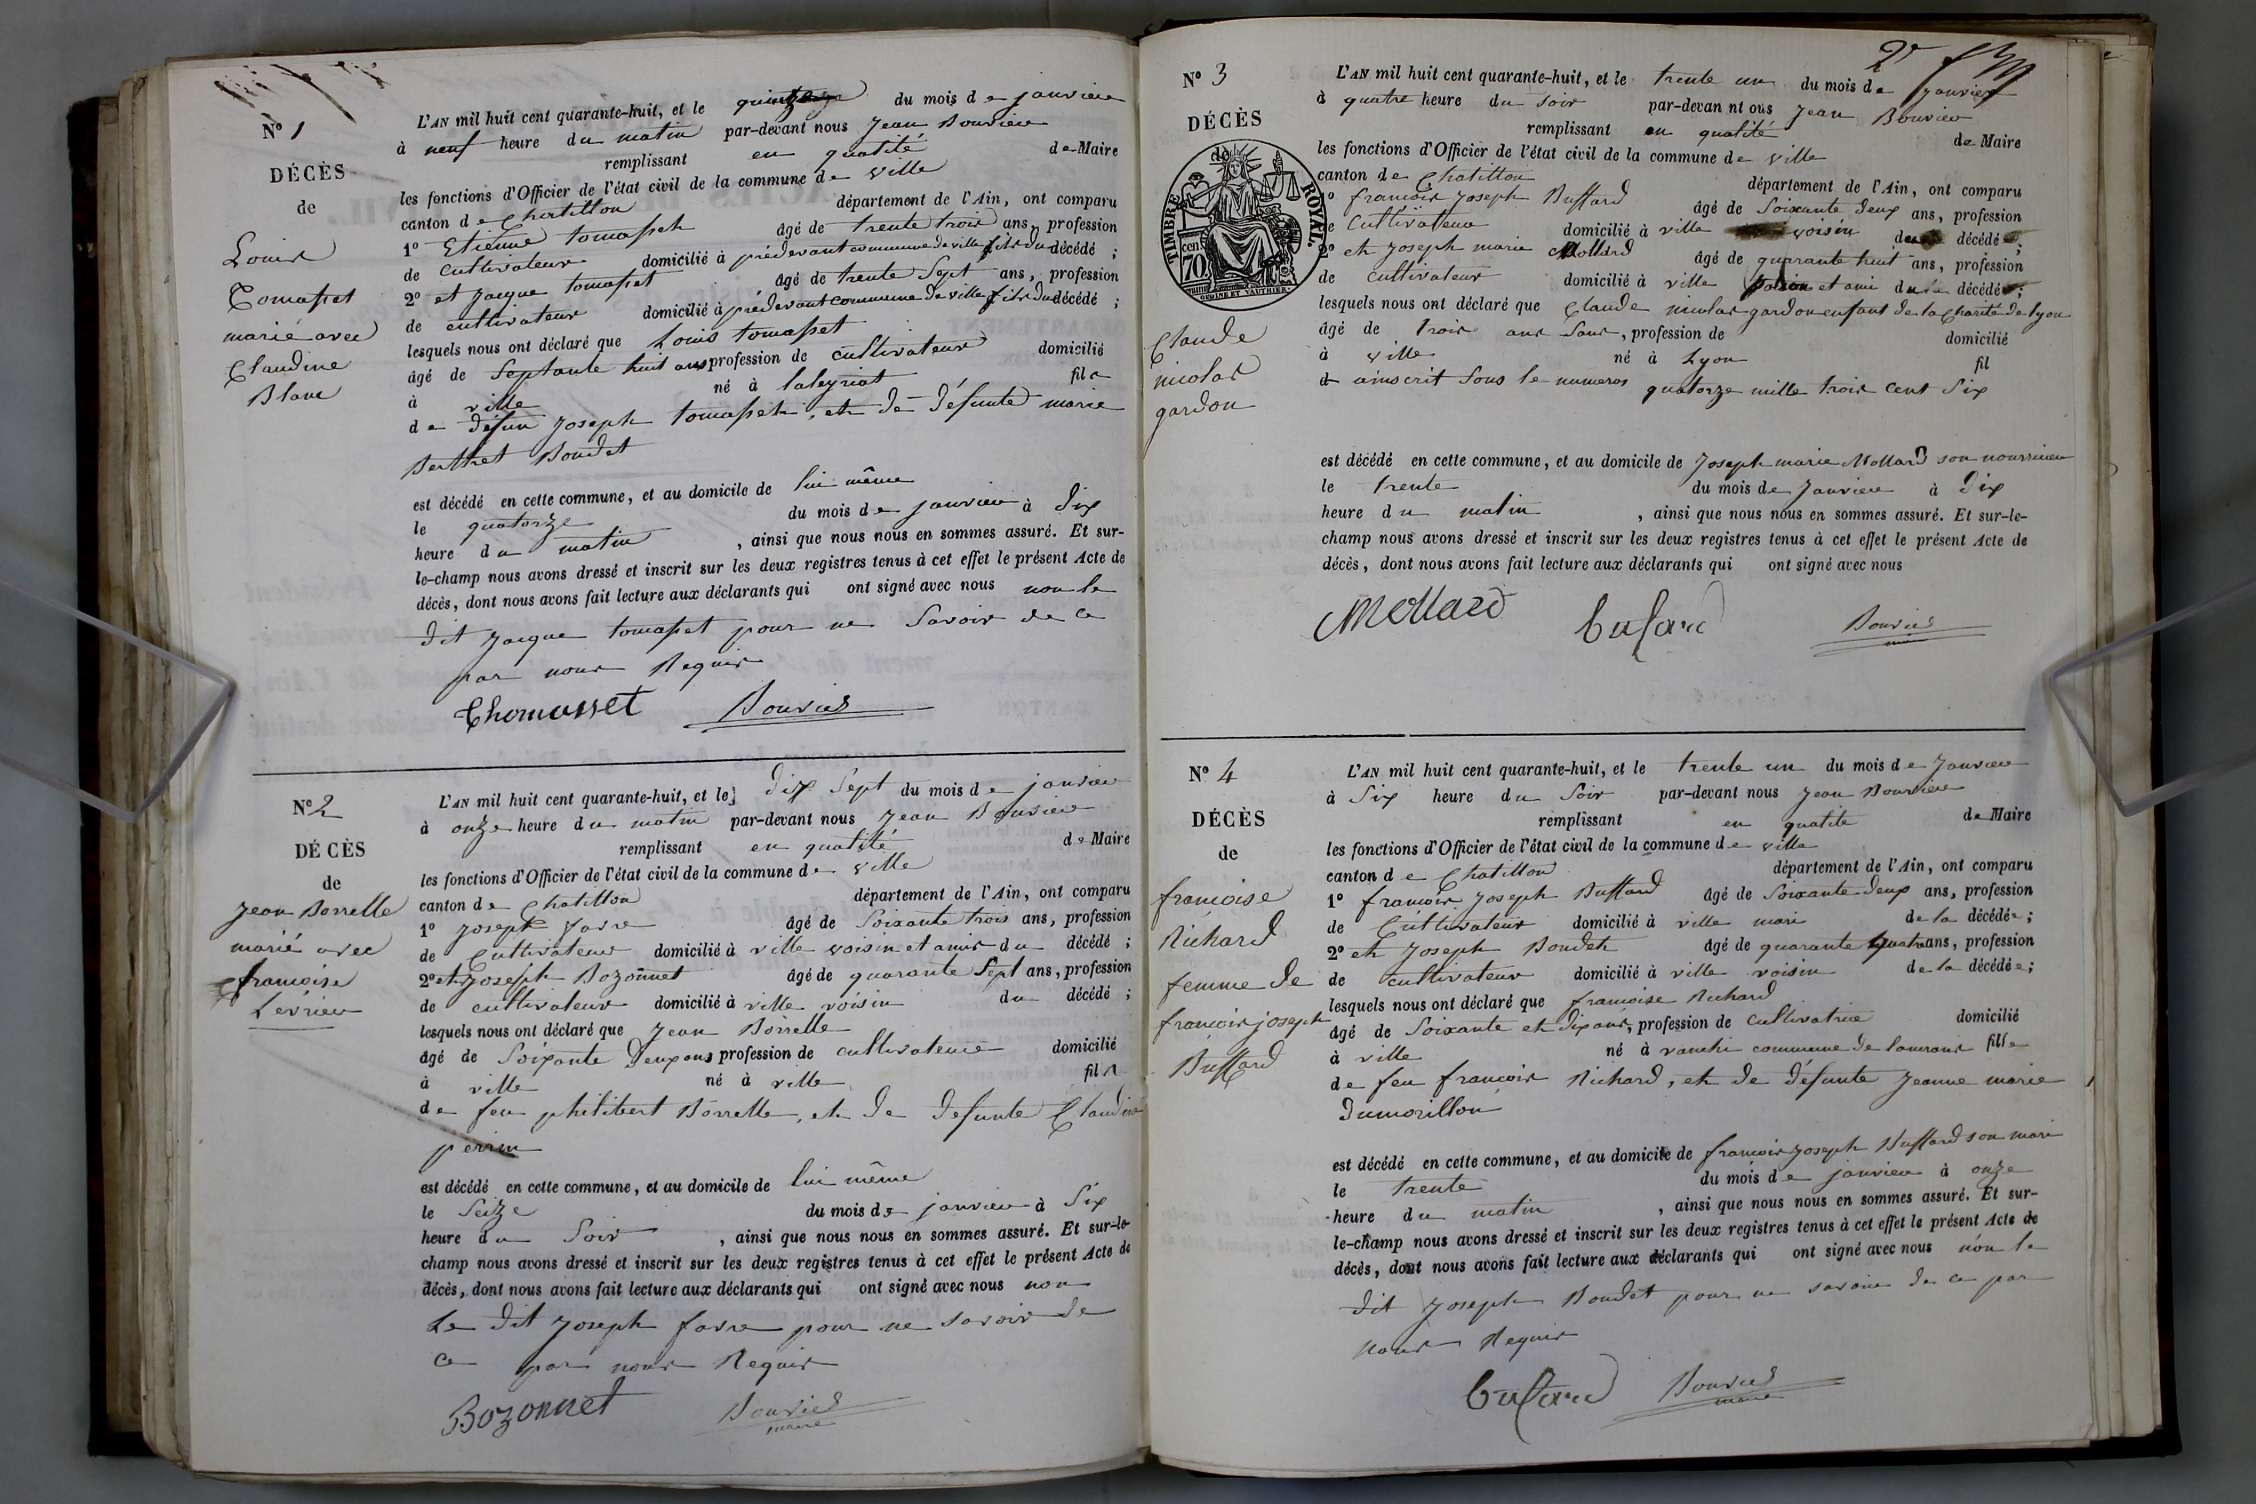 N° 1
DÉCÈS
de
Louis
Tomasset
marié avec
Claudine
Blanc
L'AN mil huit cent quarante-huit, et le quinze du mois de janvier
à neuf heure du matin par-devant nous Jean Bouvier
remplissant en qualité de Maire
les fonctions d'Officier de l'état civil de la commune de ville
canton de Chatillon département de l'Ain, ont comparu
1° Etienne tomasset agé de trente trois ans, profession
de cultivateur domicilié à prédevant commune de ville fils du décédé ;
2° et Jacque tomasset âgé de trente Sept ans, profession
de cultivateur domicilié à prédevant commune de ville fils du décédé ;
lesquels nous ont déclaré que Louis tomasset
âgé de Septante huit ans profession de cultivateur domicilié
à ville né à laleyriat fils
de défun Joseph tomasset, et de défunte marie
Berthet Boudet
est décédé en cette commune, et au domicile de lui même
le quatorze du mois de janvier à dix
heure du matin , ainsi que nous nous en sommes assuré. Et sur-
le-champ nous avons dressé et inscrit sur les deux registres tenus à cet effet le présent Acte de
décès, dont nous avons fait lecture aux déclarants qui ont signé avec nous non le
dit Jacque tomasset pour ne Savoir de ce
par nous Requis
Thomasset Bouvier
N° 2
DÉCÈS
de
Jean Borrelle
marié avec
françoise
Lévrier
L'AN mil huit cent quarante-huit, et le dix Sept du mois de janvier
à onze heure du matin par-devant nous Jean Bouvier
remplissant en qualité de Maire
les fonctions d'Officier de l'état civil de la commune de ville
canton de Chatillon département de l'Ain, ont comparu
1° Joseph favre âgé de Soixante trois ans, profession
de Cultivateur domicilié à ville voisin et amis du décédé ;
2° et Joseph Bozonnet âgé de quarante Sept ans, profession
de cultivateur domicilié à ville voisin du décédé ;
lesquels nous ont déclaré que Jean Borrelle
âgé de Soixante deux ans profession de cultivateur domicilié
à ville né à ville fils
de feu philibert Borrelle, et de defunte Claudine
perrin
est décédé en cette commune, et au domicile de lui même
le Seize du mois de janvier à Six
heure du Soir , ainsi que nous nous en sommes assuré. Et sur-le-
champ nous avons dressé et inscrit sur les deux registres tenus à cet effet le présent Acte de
décès, dont nous avons fait lecture aux déclarants qui ont signé avec nous non
Le dit Joseph favre pour ne savoir de
ce par nous Requis
Bozonnet Bouvier
maire
2e
N° 3
DÉCÈS
de
TIMBRE ROYAL
cen 70
Claude
nicolas
gardon
L'AN mil huit cent quarante-huit, et le trente un du mois de Janvier
à quatre heure du Soir par-devan nt ous Jean Bouvier
remplissant en qualité de Maire
les fonctions d'Officier de l'état civil de la commune de ville
canton de Chatillon département de l'Ain, ont comparu
1° francois Joseph Buffard âgé de Soixante deux ans, profession
de Cultivateur domicilié à ville voisin du décédé ;
2° et Joseph marie Mollard âgé de quarante huit ans, profession
de cultivateur domicilié à ville et ami du décédé ;
lesquels nous ont déclaré que Claude nicolas gardon enfant de la Charité de lyon
âgé de trois ans Sans, profession de domicilié
à ville né à Lyon fil
d ainscrit Sous le numeros quatorze mille trois Cent Six
est décédé en cette commune, et au domicile de Joseph marie Mollard son nourricier
le trente du mois de Janvier à dix
heure du matin , ainsi que nous nous en sommes assuré. Et sur-le-
champ nous avons dressé et inscrit sur les deux registres tenus à cet effet le présent Acte de
décès, dont nous avons fait lecture aux déclarants qui ont signé avec nous
Mollard bufard Bouvier
N° 4
DÉCÈS
de
francoise
Richard
femme de
francois joseph
Buffard
L'AN mil huit cent quarante-huit, et le trente un du mois de Janvier
à Six heure du Soir par-devant nous Jean Bouvier
remplissant en qualité de Maire
les fonctions d'Officier de l'état civil de la commune de ville
canton de Chatillon département de l'Ain, ont comparu
1° francois Joseph Buffard âgé de Soixante deux ans, profession
de Cultivateur domicilié à ville mari de la décédée ;
2° et Joseph Boudet âgé de quarante quatre ans, profession
de cultivateur domicilié à ville voisin de la décédée ;
lesquels nous ont déclaré que francoise Richard
âgé de Soixante et dix ans, profession de cultivatrice domicilié
à ville né à ranchi commune de lournans fille
de feu francois Richard, et de défunte Jeanne marie
Dumorillon
est décédé en cette commune, et au domicile de francois Joseph Buffard son mari
le trente du mois de janvier à onze
heure du matin , ainsi que nous nous en sommes assuré. Et sur-
le-champ nous avons dressé et inscrit sur les deux registres tenus à cet effet le présent Acte de
décès, dont nous avons fait lecture aux déclarants qui ont signé avec nous non le
dit Joseph Boudet pour ne savoir de ce par
nous Requis
bufard Bouvier
maire